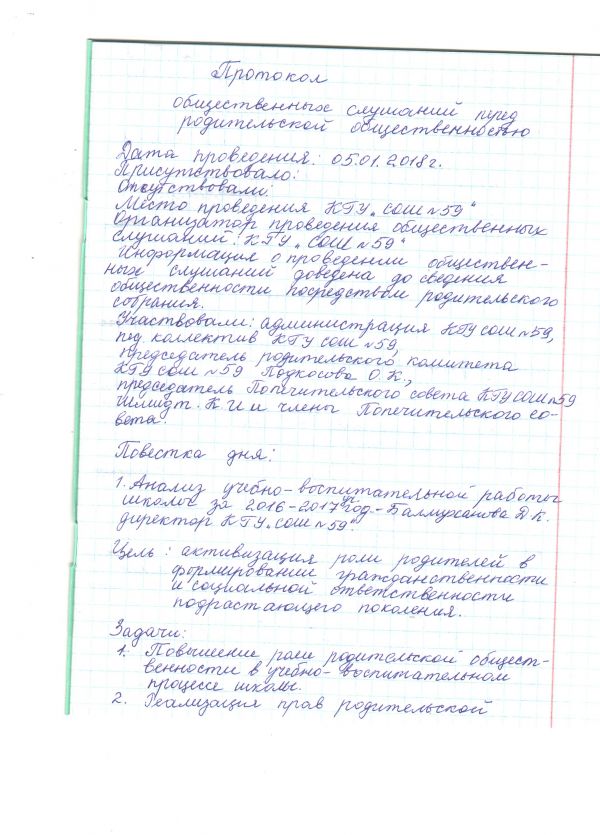 Протокол
общественных слушаний перед
родительской общественностью
Дата проведения: 05.01.2018г.
Присутствовало:
Отсутствовали:
Место проведения КГУ „СОШ №59"
Организатор проведения общественных
слушаний: КГУ „СОШ №59"
Информация о проведении обществен-
ных слушаний доведена до сведения
общественности посредством родительского
собрания.
Участвовали: администрация КГУ СОШ №59,
пед. коллектив КГУ СОШ №59,
председатель родительского комитета
КГУ СОШ №59 Подкосова О.К.,
председатель Попечительского совета КГУ СОШ №59
Шмидт К.И и члены Попечительского со-
вета.
Повестка дня:
1. Анализ учебно-воспитательной работы
школы за 2016-2017 уч год - Балмуханова Д.К.
директор КГУ „СОШ №59".
Цель: активизация роли родителей в
формировании гражданственности
и социальной ответственности
подрастающего поколения.
Задачи:
1. Повышение роли родительской общест-
венности в учебно-воспитательном
процессе школы.
2. Реализация прав родительской